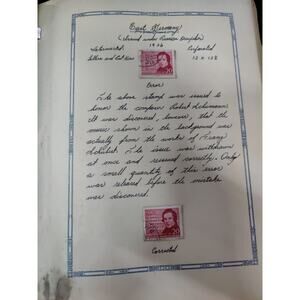 East Germany
(Issued under Russian Occupation)
1956
Watermarked
Perforated
Letters and Cut Lines
13 x 12½
Error
The above stamp was issued to
honor the composer Robert Schumann.
It was discovered, however, that the
music shown in the background was
actually from the works of Franz
Schubert. The issue was withdrawn
at once and reissued correctly. Only
a small quantity of this error
was released before the mistake
was discovered.
Corrected